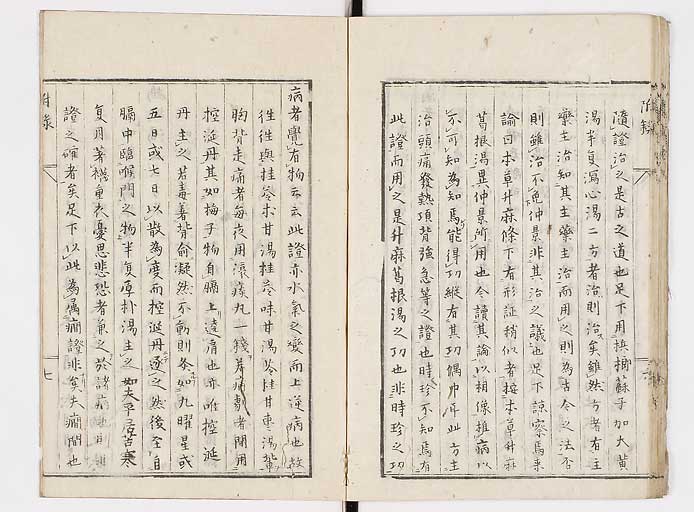 隨證治之是古之道也足下用檳榔蘇子加大黃
湯半夏瀉心湯二方者治則治矣雖然方者有主
藥主治知其主藥主治而用之則為古今之法否
則雖治不免仲景非其治之議也足下諒察焉来
諭曰本草升麻條下有形証稍似者按本草升麻
葛根湯異仲景所用也今讀其論以相像推病以
不可知為知焉能得功縱有其功偶中耳此方主
治頭痛發熱項背強急等之證也時珍不知焉有
此證而用之是升麻葛根湯之功也非時珍之功
附錄
六
病者覺有物云云此證亦水氣之變而上逆病也故
往往與桂苓朮甘湯桂苓味甘湯苓桂甘棗湯
胸背走痛者每夜用滾痰丸一錢 間用
控涎丹其如梅子物自膈上 亦唯控涎
丹主之若毒著背俞凝然不動則灸如九曜星或
五日或七日以散為度而控涎丹逐之然後至自
膈中臨喉門之物半夏厚朴湯主之如夫早 苦寒
夏月著襪重衣憂思悲恐者兼之於諸病也
證之確者矣足下以此為属癇證非矣夫癇 也
附錄
七